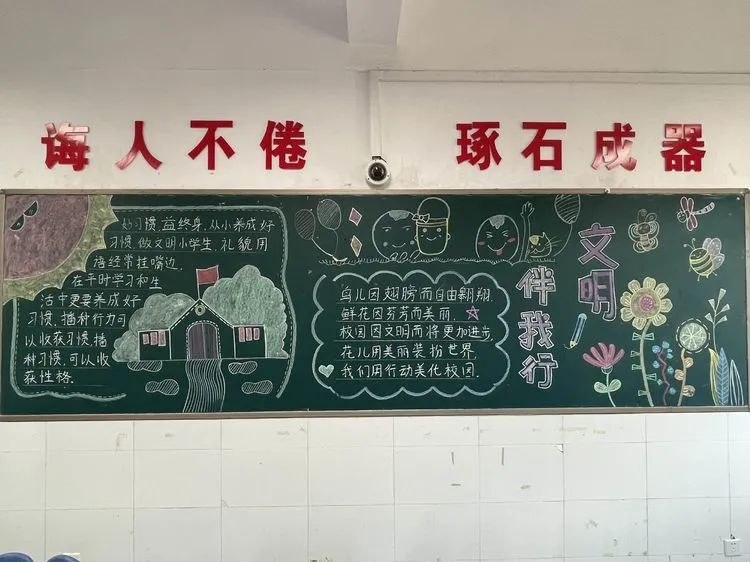 诲人不倦
琢石成器
好习惯,益终身,从小养成好
习惯,做文明小学生,礼貌用
语经常挂嘴边,
在平时学习和生
活中更要养成好
习惯,播种行为可
以收获习惯,播
种习惯,可以收
获性格.
鸟儿因翅膀而自由翱翔.
鲜花因芬芳而美丽.
校园因文明而将更加进步,
花儿用美丽装扮世界,
我们用行动美化校园.
文明
伴我行